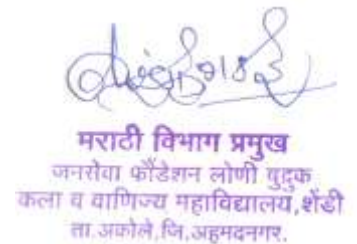 मराठी विभाग प्रमुख
जनसेवा फौंडेशन लोणी बुद्रुक
कला व वाणिज्य महाविद्यालय, शेंडी
ता.अकोले,जि.अहमदनगर.